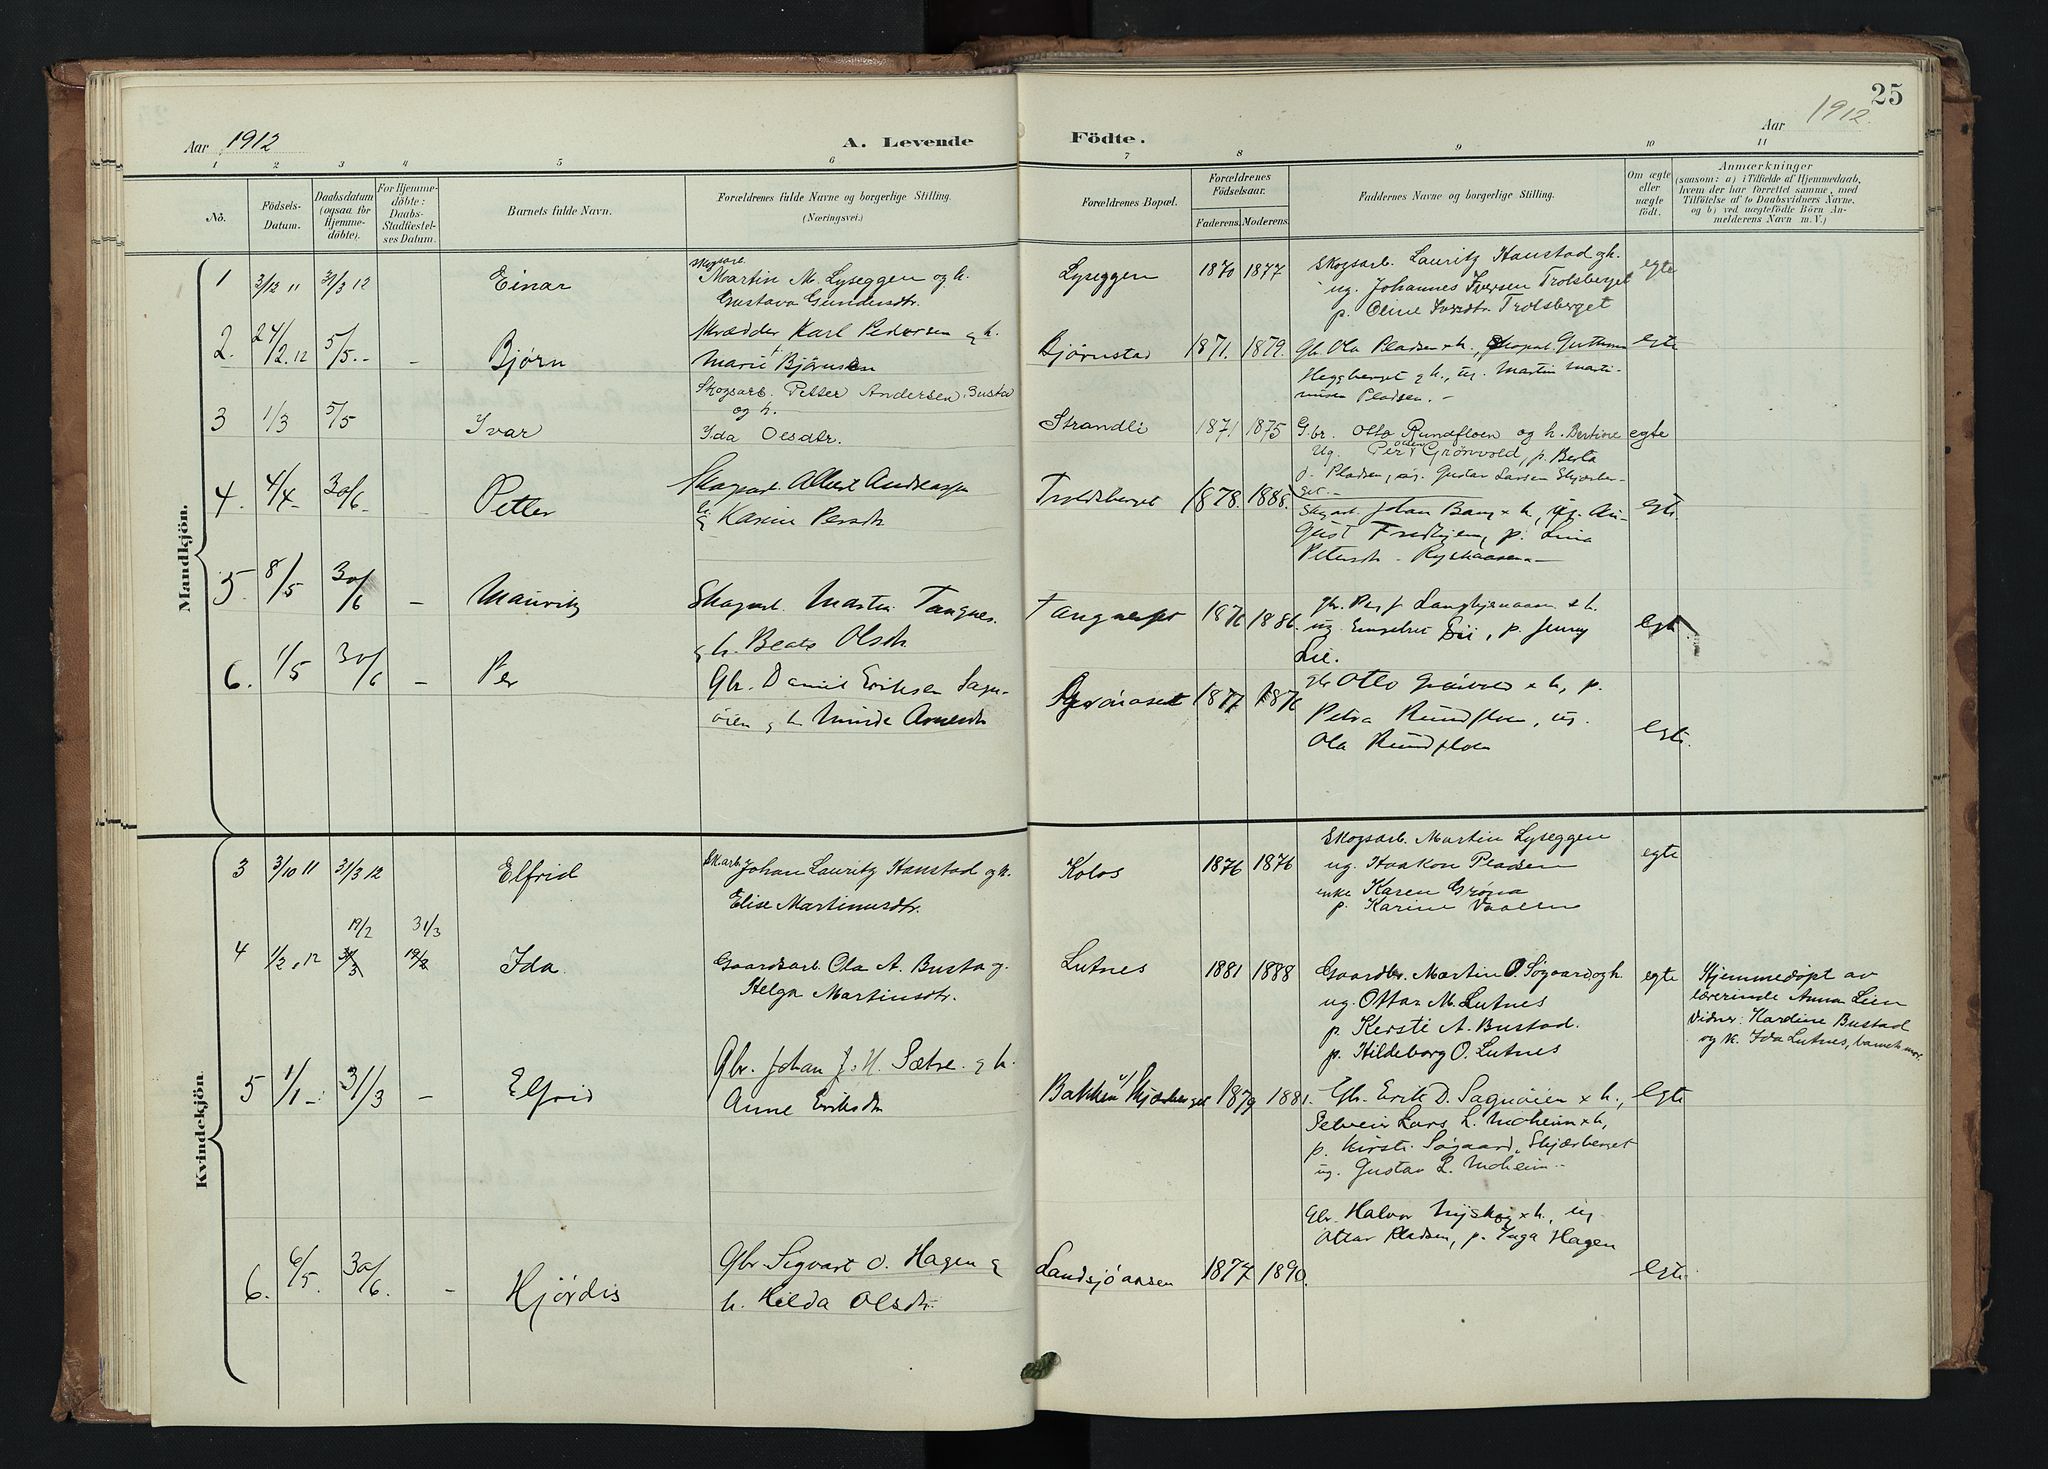 25
Aar 1912
A. Levende
Födte.
Aar 1912.
1 2 3 4 5 6 7 8 9 10 11
No.
Födsels-Datum.
Daabsdatum (ogsaa for Hjemme-döbte).
For Hjemme-döbte: Daabs-Stadfæstel-ses Datum.
Barnets fulde Navn.
Forældrenes fulde Navne og borgerlige Stilling.
(Næringsvei.)
Forældrenes Bopæl.
Forældrenes Födselsaar.
Faderens. Moderens.
Faddernes Navne og borgerlige Stilling.
Om ægte eller uægte födt.
Anmærkninger
(saasom: a) i Tilfælde af Hjemmedaab,
hvem der har forrettet samme, med
Tilföielse af to Daabsvidners Navne,
og b) ved uægtefödte Börn An-
melderens Navn m. V.)
Mandkjön.
1 3/12 11 31/3 12 Einar
Skogsarb.
Martin M. Lyseggen og h.
Gustava Gundersdtr.
Lyseggen 1870 1877
Skogsarb. Lauritz Hanstad og h.
ug. Johannes Iversen Trolsberget
p. Oline Trolsberget
egte
2. 24/2. 12 5/5 - - Bjørn
Skrædder Karl Pedersen og h.
Marie Bjørnsen
Bjørnstad 1871. 1879.
Gbr. Ola Pladsen x h.,
Heggberget og h., ug. Martin Marti-
nusen Pladsen. -
egte
3 1/3 5/5 Ivar
Skogsarb. Petter Andersen Busta
og h.
Ida Olsdtr.
Strandli 1871 1875
Gbr. Otto Rundfloen og h. Bertine
Ug. Per Grønvold, p. Berta
Pladsen, ug. Gustav Larsen Skjærber-
get. -
egte
4. 4/4 - 30/6 - - Petter
Skogarb. Albert Andreassen
og h. Karine Persdtr
Troldsberget 1878. 1888.
Skogarb. Johan Bang x h., ug. Au-
gust p. Lina
Petersdtr
egte.
5. 8/5 30/6 - Mauritz
Skogarb. Martin Tangnes.
og h. Beate Olsdtr
1876 1886.
gbr. Per J x h.
ug. p. Jenny
Lie.
egte
6. 1/5 30/6 - Per
Gbr. Daniel Eriksen Sagn-
øien og h
1877 1876
gbr Otto x h, p.
Petra Rundfloen, ug.
Ola Rundfloen
egte.
Kvindekjön.
3 3/10 11 31/3 12 Elfrid
Skarb. Johan Lauritz Hanstad og h.
Elise Martinusdtr.
Kolos 1876 1876
Skogsarb. Martin Lyseggen
ug. Haakon Pladsen
enke Karen Grøna
p. Karine Vaalen
egte
19/2 31/3
4 1/2. 12 31/3 19/2 Ida.
Gaardsarb. Ola A. Busta og
Helga Martinsdtr.
Lutnes 1881 1888
Gaardbr. Martin O. Søgaard og h.
ug. Ottar M. Lutnes
p. Kersti A. Bustad.
p. Hildeborg O. Lutnes
egte
Hjemmedøpt av
lærerinde Anna Lien
Vidner: Kardine Bustad
og k. Ida Lutnes,
5 1/1 - 31/3 - Elfrid
Gbr. Johan J. H. Sætre og h.
Anne Eriksdtr
Bakken v/ Skjærberget 1879 1881.
Gbr. Erik D. Sagnøien x h.,
Selveier Lars L. Moheim x h,
p. Kirsti Søgaard, Skjærberget
ug. Gustav L. Moheim -
egte
6. 6/5. 30/6. - Hjørdis
Gbr Sigvart O. Hagen og
h. Hilda Olsdtr.
Landsjøaasen 1877 1890.
Gbr. Halvor Nyskog x h., ug
Ottar Pladsen, p. Inga Hagen
egte.